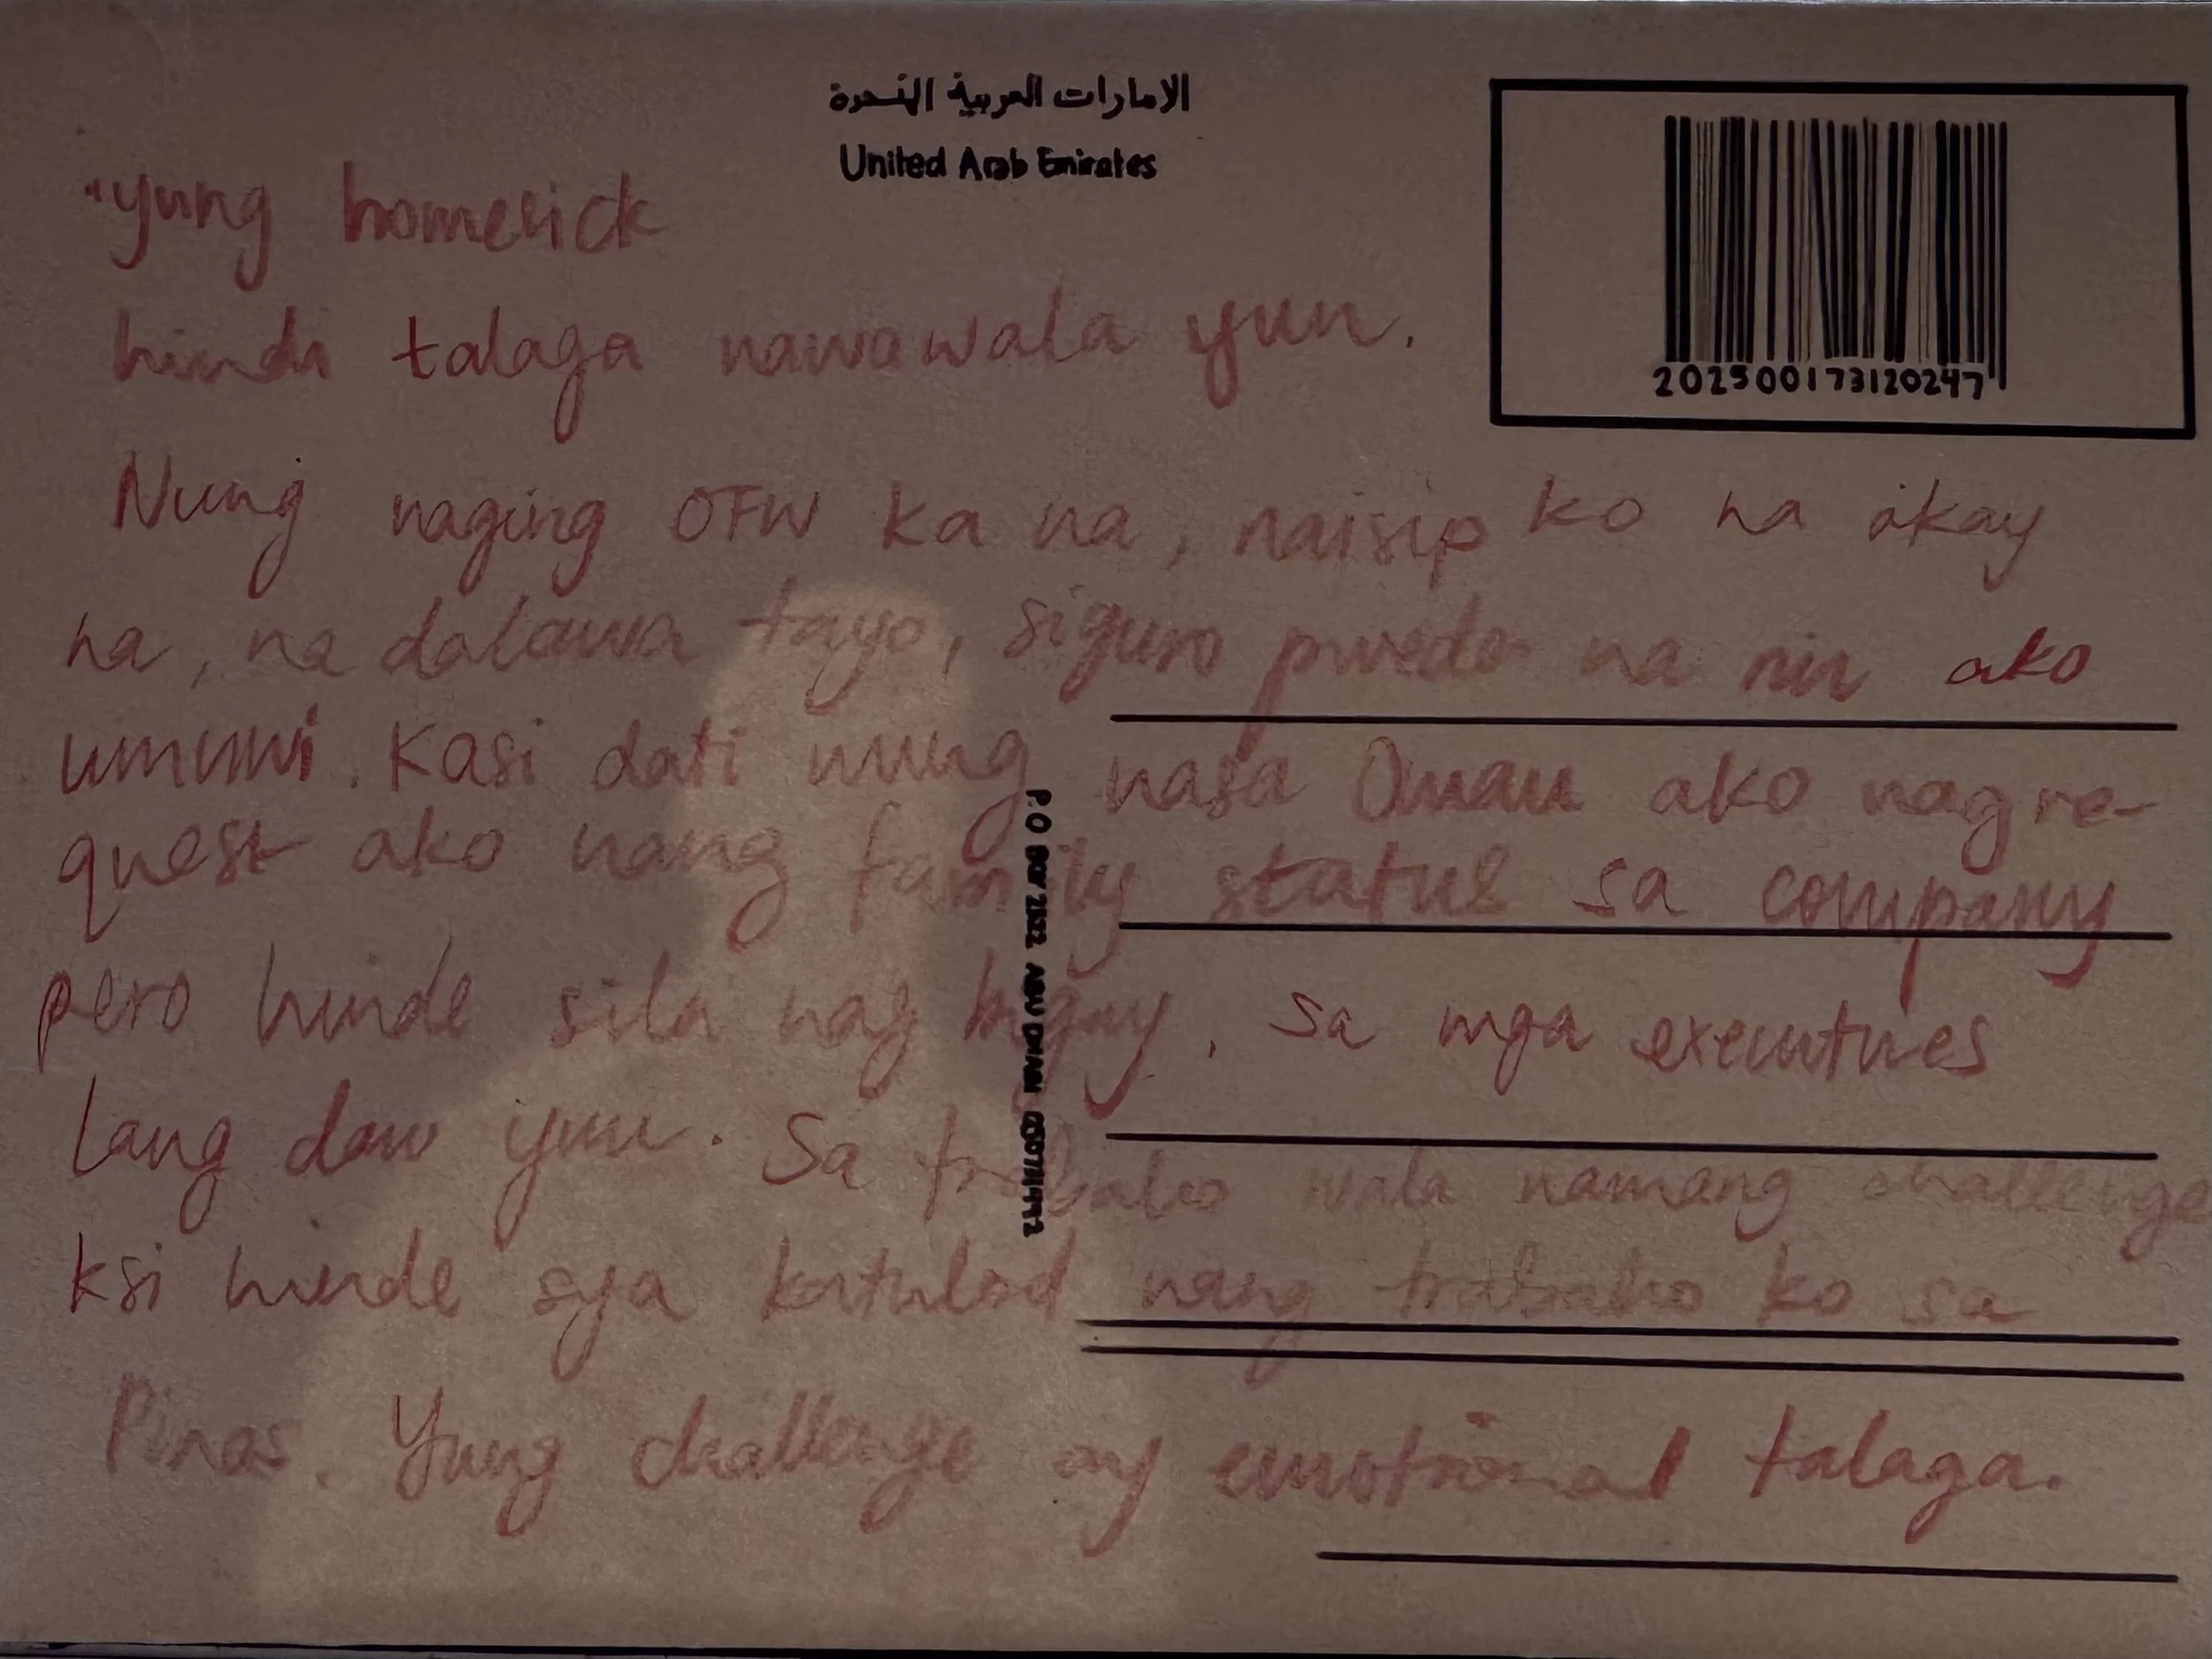 الامارات العربية المتحدة
United Arab Emirates
202500173120247
"yung homesick
hindi talaga nawawala yun.
Nung naging OFW ka na, naisip ko na okay
na, na dalawa tayo, siguro pwede na rin ako
umuwi. Kasi dati nung nasa Oman ako nagre-
quest ako nang family status sa company
pero hinde sila nag bigay, sa mga executives
lang daw yun. Sa trabaho wala namang challenge
ksi hinde sya katulad nang trabaho ko sa
Pinas. Yung challenge ay emotional talaga.
P.O BOX ABU DHABI